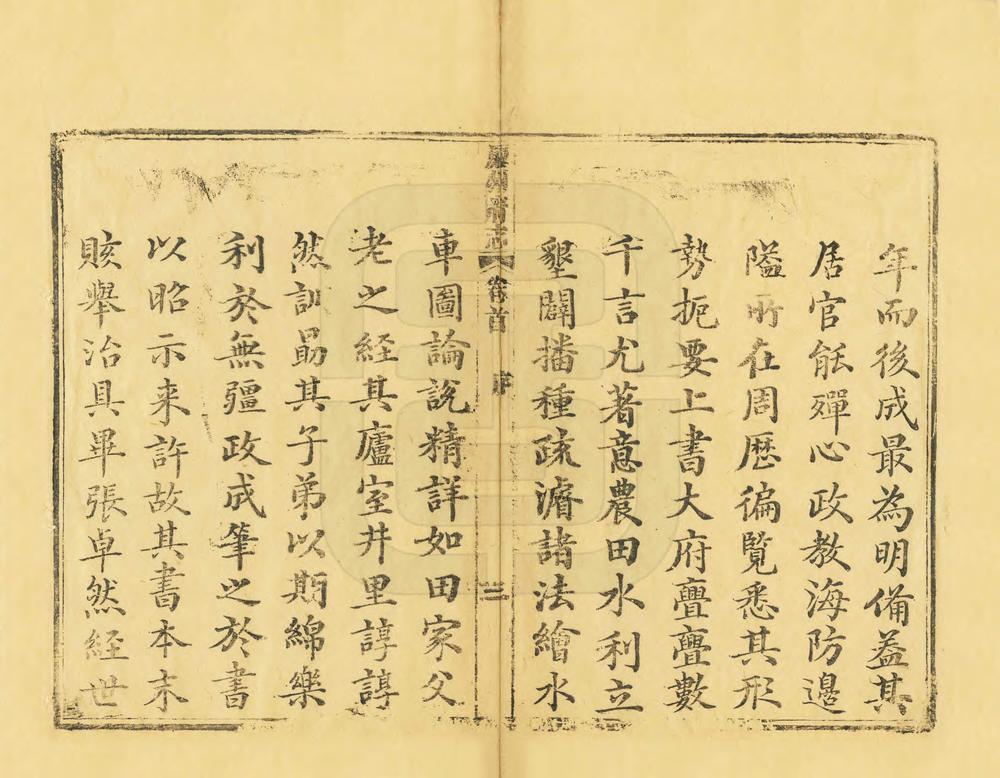 年而後成最為明備蓋其
居官能殫心政教海防邊
隘所在周歷徧覽悉其形
勢扼要上書大府亹亹數
千言尤著意農田水利立
墾闢播種疏濬諸法繪水
州府志 卷首 序 三
車圖論說精詳如田家父
老之經其廬室井里諄諄
然訓勗其子弟以期綿樂
利於無疆政成筆之於書
以昭示来許故其書本末
賅舉治具畢張卓然經世